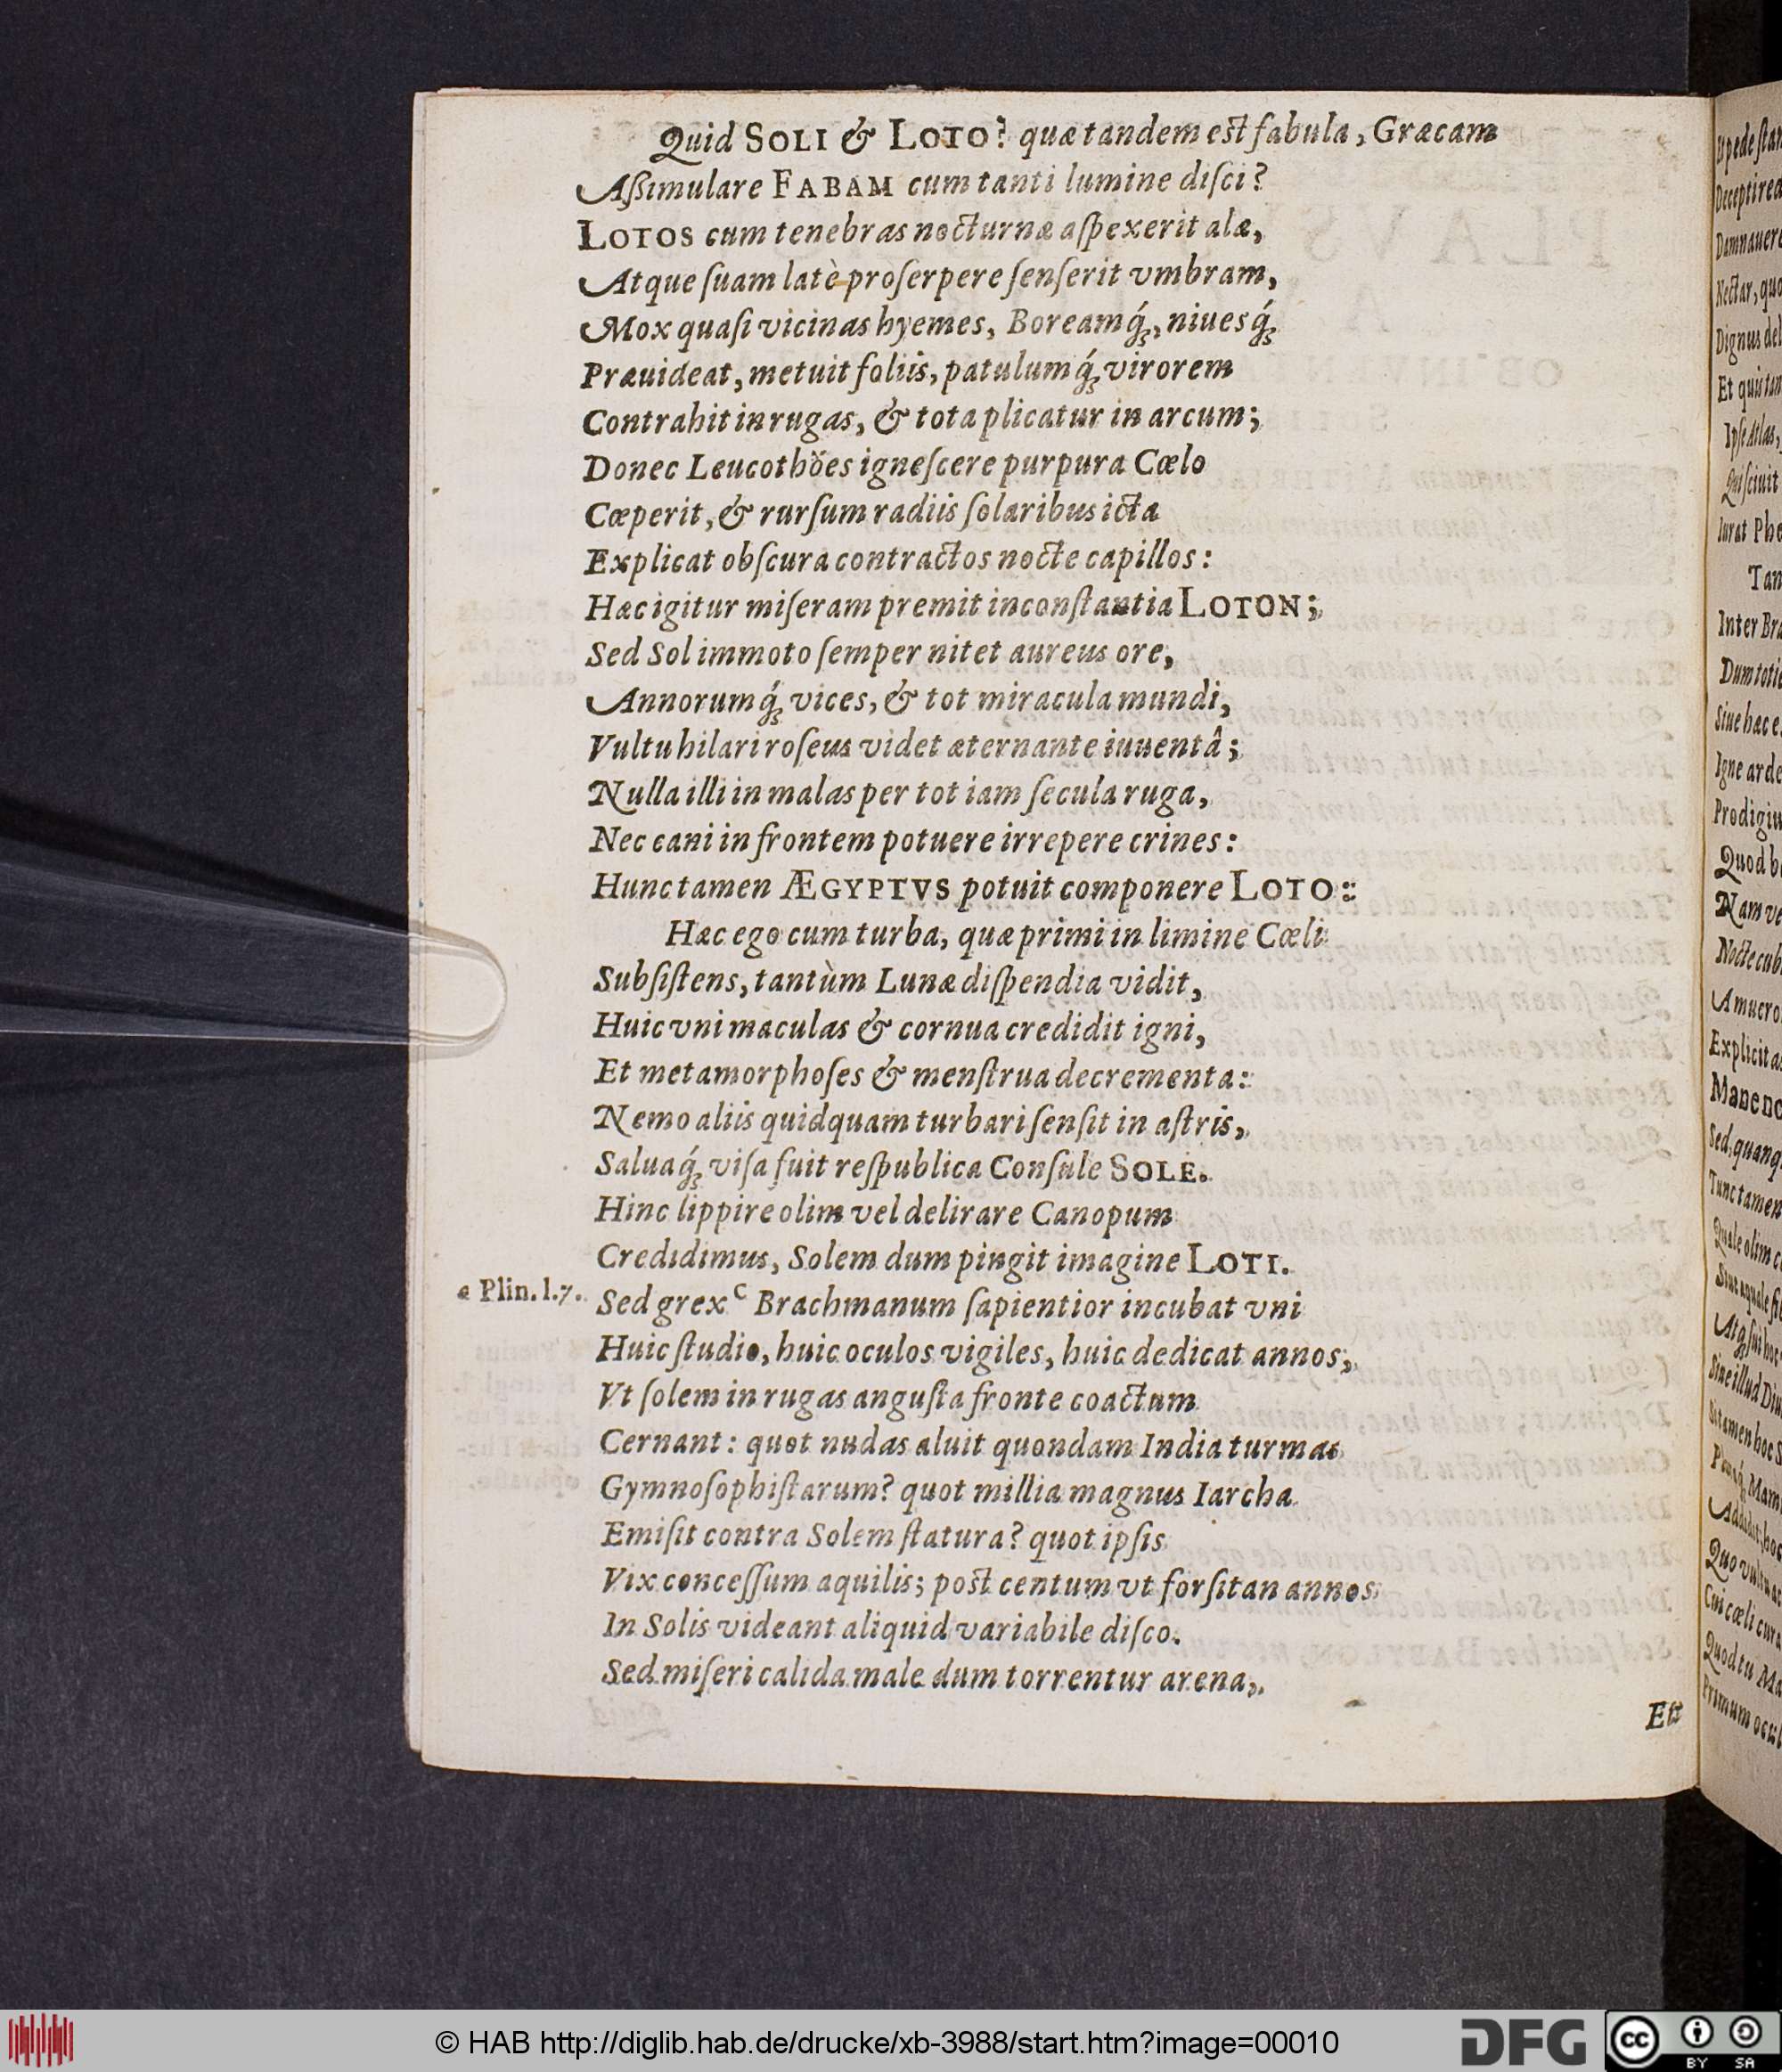 Quid SOLI & LOTO? quæ tandem est fabula, Græcam
Aſsimulare FABAM cum tanti lumine diſci?
LOTOS cum tenebras nocturnæ aſpexerit alæ,
Atque ſuam latè proſerpere ſenſerit vmbram,
Mox quaſi vicinas hyemes, Boreamq́;, niuesq́;
Præuideat, metuit foliis, patulumq́; virorem
Contrahit in rugas, & tota plicatur in arcum;
Donec Leucothöes igneſcere purpura Cœlo
Cœperit, & rurſum radiis ſolaribus icta
Explicat obſcura contractos nocte capillos:
Hæc igitur miſeram premit inconſtantia LOTON;
Sed Sol immoto ſemper nitet aureus ore,
Annorumq́; vices, & tot miracula mundi,
Vultu hilari roſeus videt æternante iuuentâ;
Nulla illi in malas per tot iam ſecula ruga,
Nec cani in frontem potuere irrepere crines:
Hunc tamen ÆGYPTVS potuit componere LOTO:
Hæc ego cum turba, quæ primi in limine Cœli
Subſiſtens, tantùm Lunæ diſpendia vidit,
Huic vni maculas & cornua credidit igni,
Et metamorphoſes & menſtrua decrementa:
Nemo aliis quidquam turbari ſenſit in aſtris,
Saluaq́; viſa fuit reſpublica Conſule SOLE.
Hinc lippire olim vel delirare Canopum
Credidimus, Solem dum pingit imagine LOTI.
c Plin. l. 7. Sed grex c Brachmanum ſapientior incubat vni
Huic ſtudio, huic oculos vigiles, huic dedicat annos,
Vt ſolem in rugas anguſta fronte coactum
Cernant: quot nudas aluit quondam India turmas
Gymnoſophiſtarum? quot millia magnus Iarcha
Emiſit contra Solem ſtatura? quot ipſis
Vix conceſſum aquilis; post centum vt forſitan annos
In Solis videant aliquid variabile diſco.
Sed miſeri calida male dum torrentur arena,
Et
pede ſtan
Decepti
Damnauere
Nectar, quo
Dignus
Et quis
Ipſe Atlas,
ſciuit
Iurat
Tan
Inter
Dum
Siue hac
Igne
Quod
Nam
Nocte
A
Explicit
Sed, quanq
Tunc tamen
Quale olim
Sine illud
Mam
Cui cœli
Quod tu
Primum
© HAB http://diglib.hab.de/drucke/xb-3988/start.htm?image=00010
DFG
cc BY SA